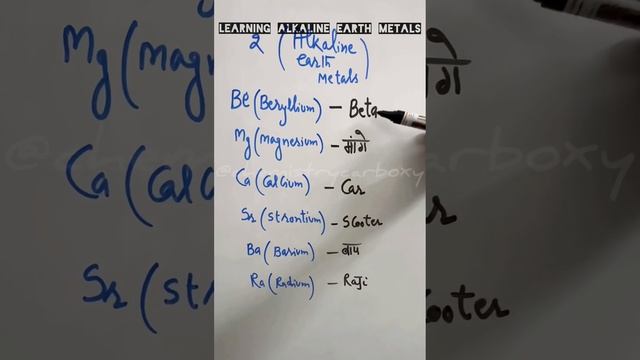 LEARNING ALKALINE EARTH METALS
2 (Alkaline
earth
metals)
Be (Beryllium) – Beta
Mg (Magnesium) – मांगे
Ca (Calcium) – Car
Sr (Strontium) – Scooter
Ba (Barium) – बाप
Ra (Radium) – Raji